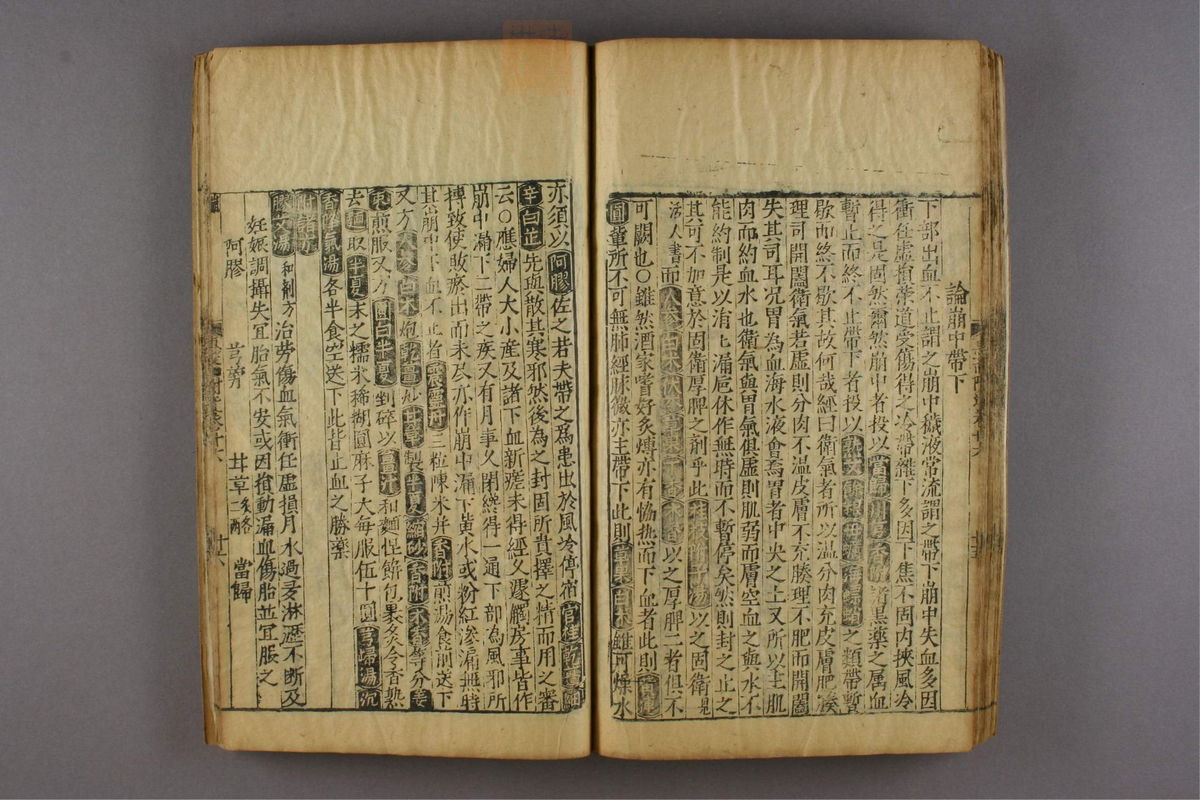 論崩中帶下
下部出血不止謂之崩中穢液常流謂之帶下崩中失血多因
衝任虛損榮道受傷得之冷帶雜下多因下焦不固内挾風冷
得之是固然爾然崩中者投以當歸川芎香附諸黑藥之属血
暫止而終不止帶下者投以熟艾之類帶暫
歇而終不歇其故何哉經曰衛氣者所以温分肉充皮膚肥湊
理司開闔衛氣若虛則分肉不温皮膚不充腠理不肥而開闔
失其司耳况胃為血海水液會焉胃者中央之土又所以主肌
肉而約血水也衛氣與胃氣俱虛則肌弱而膚空血之與水不
能約制是以漏巵休作無時而不暫停矣然則封之止之
其可不加意於固衛厚脾之劑乎此桂枝附子湯以之固衛見
活人書而以之厚脾二者俱不
可闕也○雖然酒家嗜好炙煿亦有恊热而下血者此則
圓軰所不可無肺經脉微亦主帶下此則白术雖可燥水
亦須以阿膠佐之若夫帶之為患出於風冷停宿官桂乾薑細
辛白芷先與散其寒邪然後為之封固所貴擇之精而用之審
云○應婦人大小産及諸下血新瘥未得經久遽觸房事皆作
崩中漏下二帶之疾又有月事久閉纔得一通下部為風邪所
摶致使敗瘀出而未及亦作崩中漏下黄水或粉紅滲漏無時
其崩中下血不止者震靈丹三粒陳米并香附煎湯食前送下
又方白术炮乾薑炒甘草製半夏縮砂香附木香等分姜
棗煎服又方圓白半夏剉碎以薑汁和麵恠餅包裹炙令香熟
去麵取半夏末之糯米稀糊圓麻子大每服伍十圓芎歸湯沉
香降氣湯各半食空送下此皆止血之勝藥
附諸方
膠艾湯 和劑方治勞傷血氣衝任虛損月水過多淋瀝不断及
妊娠調攝失宜胎氣不安或因損動漏血傷胎並宜服之
阿膠 芎藭 甘草炙各二兩 當歸